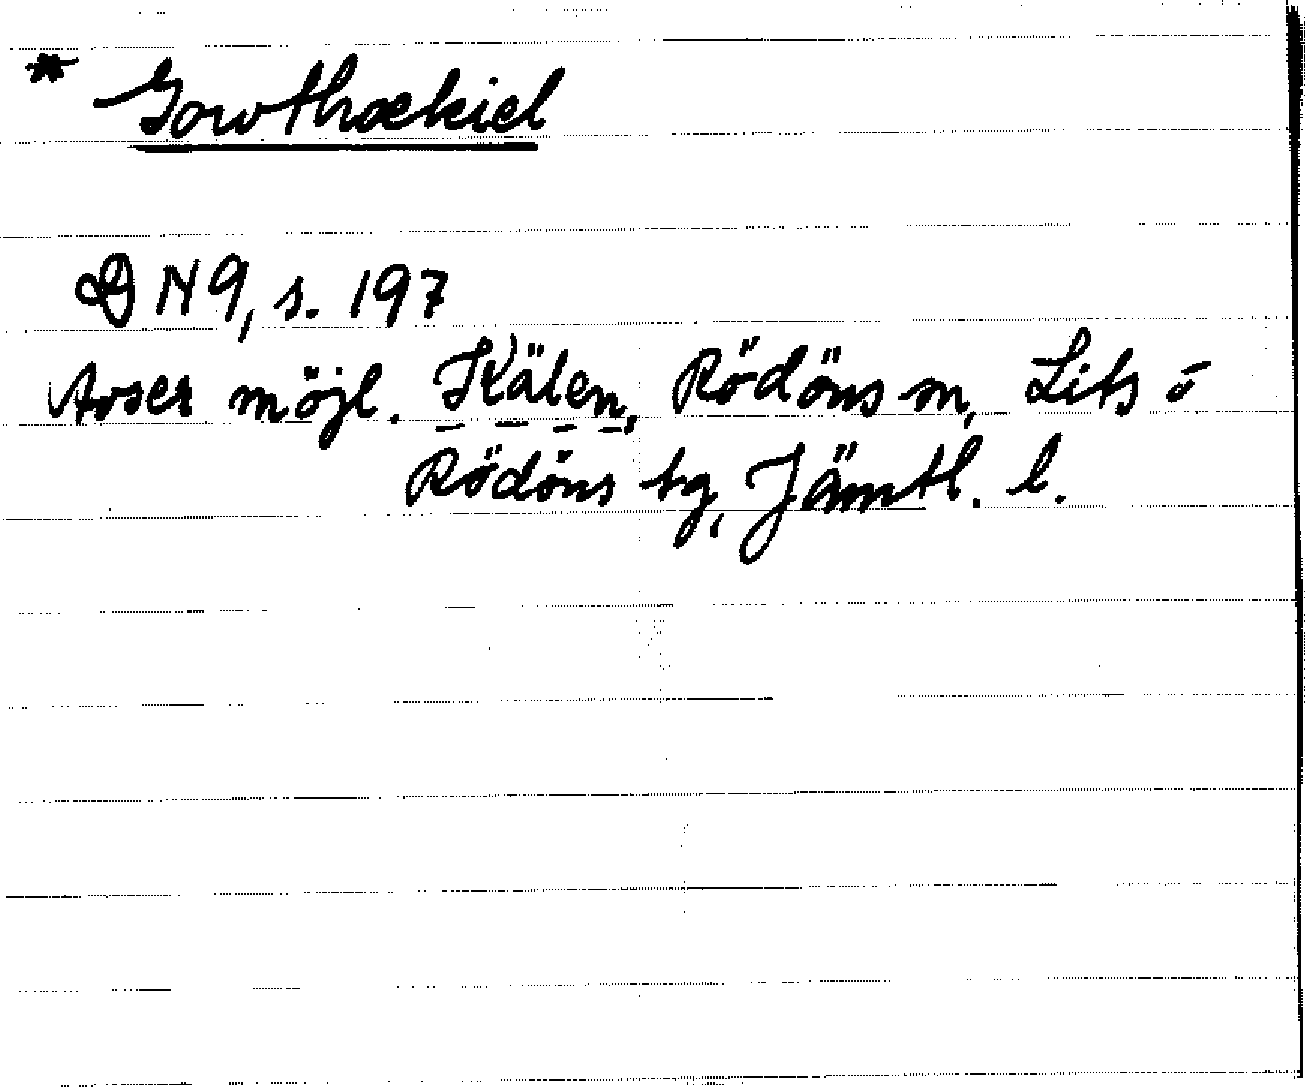 * Gowthrækiel
DN 9, s. 197
Avser möjl. Kälen, Rödöns sn, Lits o
Rödöns tg, Jämtl. l.